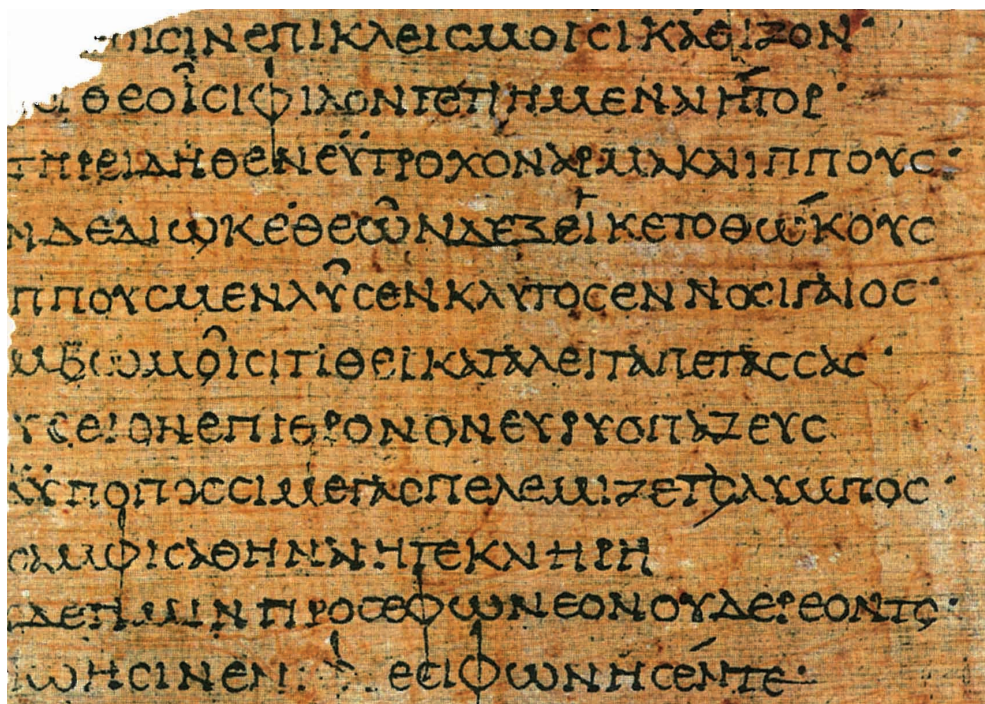 ΟΙϹΙΝΕΠΙΚΛΕΙϹΜΟΙϹΙΚΑΘΕΙΖΟΝ·
ΙϹΙΘΕΟΙ͂ϹΙΦΙΛΟΝΤΕΤΙΗΜΕΝΑΙΗ͂ΤΟΡ·
ΤΗΡΕΙΔΗΘΕΝΕΫΤΡΟΧΟΝΑΡΜΑΚΑΙΙΠΠΟΥϹ·
ΝΔΕΔΙΩΚΕΘΕΩ͂ΝΔΕΞΕΙΚΕΤΟΘΏΚΟΥϹ
ΠΠΟΥϹΜΕΝΛΥ͂ϹΕΝΚΛΥΤΟϹΕΝΝΟϹΙΓΑΙΟϹ·
ΜΒΩΜΟΙ͂ϹΙΤΙΘΕΙΚΑΤΑΛΕΙΤΑΠΕΤΑϹϹΑϹ·
ΥϹΕΙΟΝΕΠΙΘΡΟΝΟΝΕΥΡΥΟΠΑΖΕΥϹ
ΔΫΠΟΠΟϹϹΙΜΕΓΑϹΠΕΛΕΜΙΖΕΤΟΛΥΜΠΟϹ·
ϹΑΜΦΙϹΑΘΗΝΑΙΗΤΕΚΑΙΗΡΗ
ΔΕΤΙΜΙΝΠΡΟϹΕΦΩΝΕΟΝΟΥΔΕΡΕΟΝΤΟ·
ΩΗϹΙΝΕΝΙΦ ΕϹΙΦΩΝΗϹΈΝΤΕ·